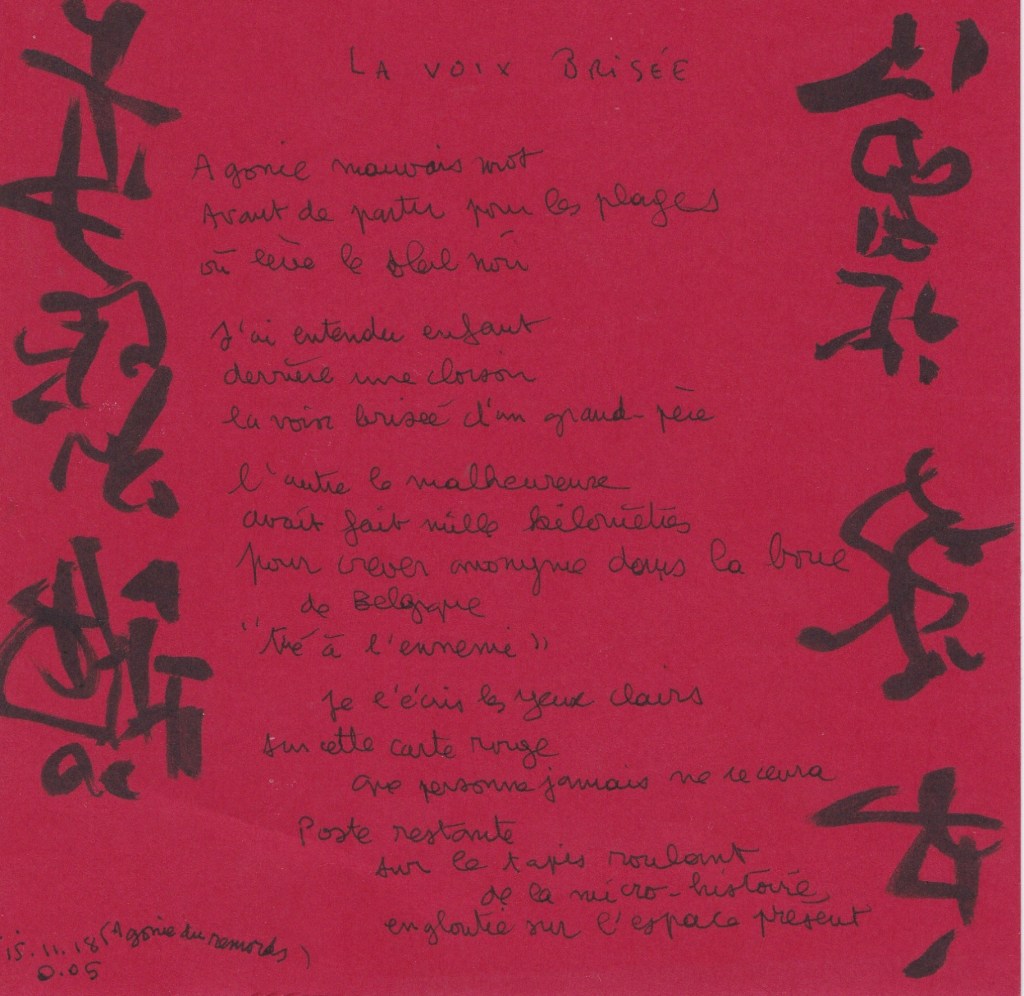 LA VOIX BRISÉE
Agonie mauvais mot
Avant de partir pour les plages
où lève le soleil noir
J'ai entendu enfant
derrière une cloison
la voix brisée d'un grand-père
l'autre le malheureux
avait fait mille kilomètres
pour crever anonyme dans la boue
de Belgique
"tué à l'ennemi"
je l'écris les yeux clairs
sur cette carte rouge
que personne jamais ne recevra
Poste restante
sur le tapis roulant
de la micro-histoire
engloutie sur l'espace présent
15.11.18 (Agonie du remords)
0.05